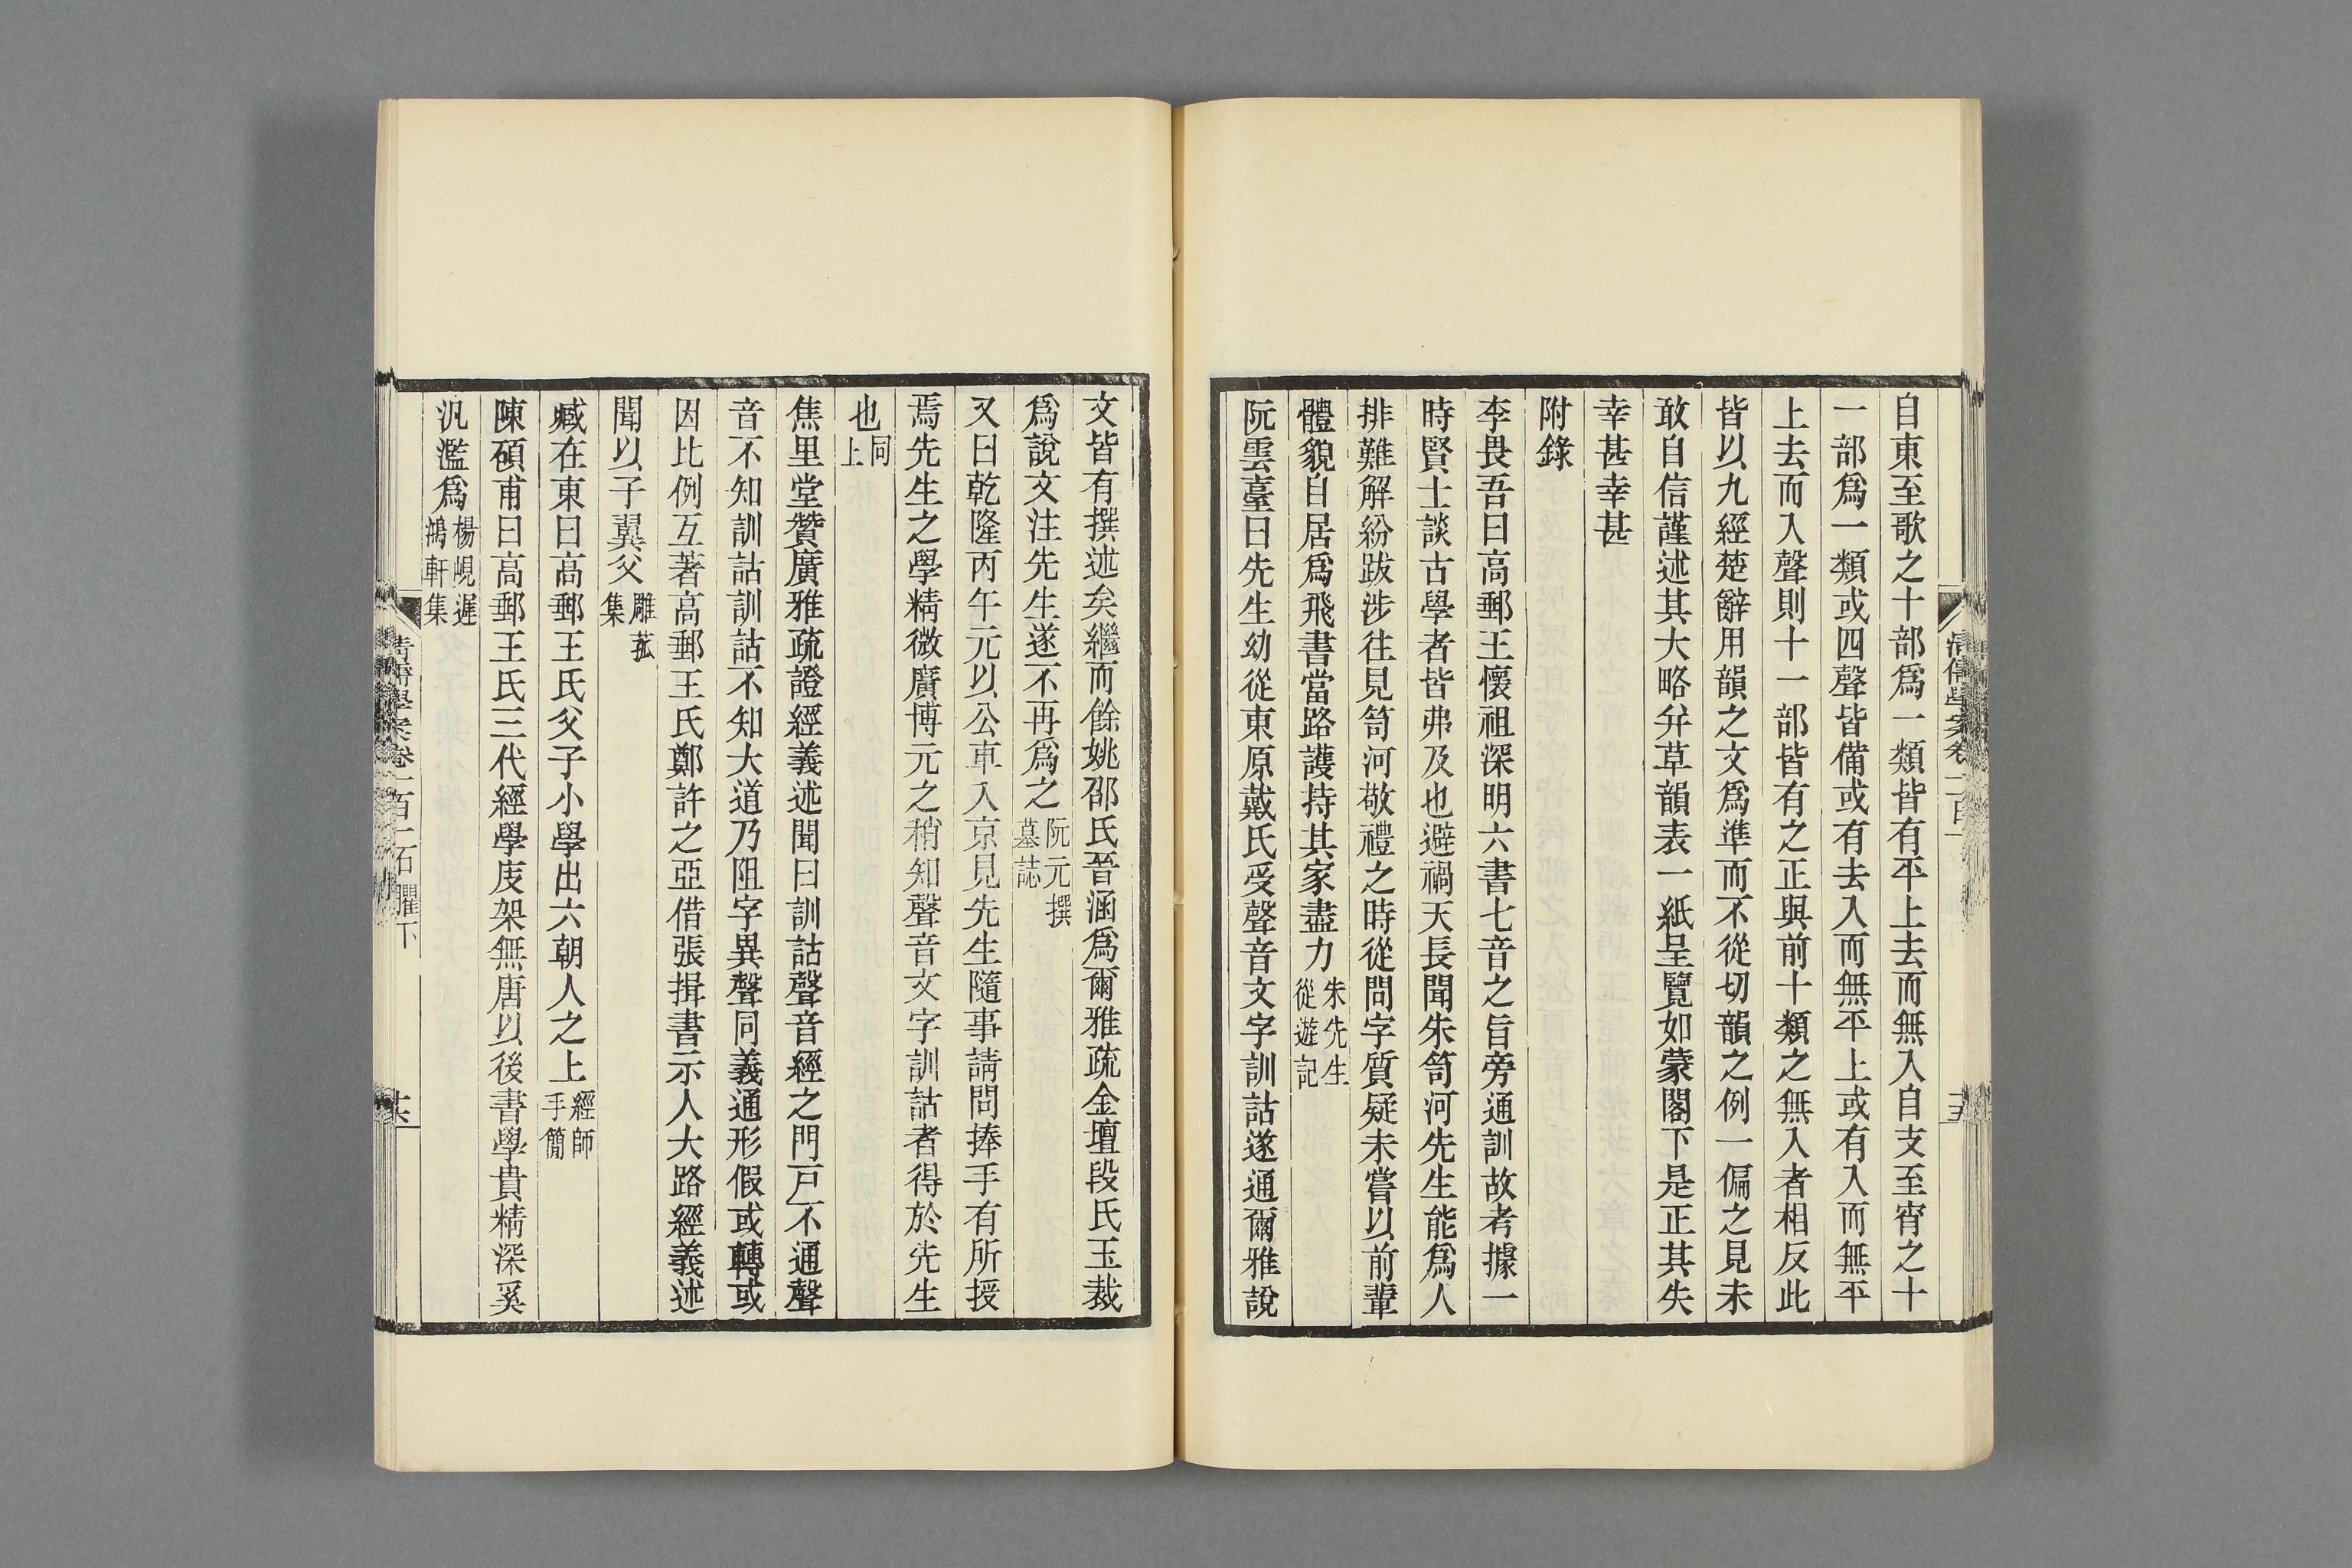 自東至歌之十部爲一類皆有平上去而無入自支至宵之十
一部爲一類或四聲皆備或有去入而無平上或有入而無平
上去而入聲則十一部皆有之正與前十類之無入者相反此
皆以九經楚辭用韻之文爲準而不從切韻之例一偏之見未
敢自信謹述其大略幷草韻表一紙呈覽如蒙閣下是正其失
幸甚幸甚
附錄
李畏吾曰高郵王懷祖深明六書七音之旨旁通訓故考據一
時賢士談古學者皆弗及也避禍天長聞朱笥河先生能爲人
排難解紛跋涉往見笥河敬禮之時從問字質疑未嘗以前輩
體貌自居爲飛書當路護持其家盡力朱先生從遊記
阮雲臺曰先生幼從東原戴氏受聲音文字訓詁遂通爾雅說
文皆有撰述矣繼而餘姚邵氏晉涵爲爾雅疏金壇段氏玉裁
爲說文注先生遂不再爲之阮元撰墓誌
又曰乾隆丙午元以公車入京見先生隨事請問捧手有所授
焉先生之學精微廣博元之稍知聲音文字訓詁者得於先生
也同上
焦里堂贊廣雅疏證經義述聞曰訓詁聲音經之門戸不通聲
音不知訓詁訓詁不知大道乃阻字異聲同義通形假或轉或
因比例互著高郵王氏鄭許之亞借張揖書示人大路經義述
聞以子翼父雕菰集
臧在東曰高郵王氏父子小學出六朝人之上經師手簡
陳碩甫曰高郵王氏三代經學庋架無唐以後書學貴精深奚
汎濫爲楊峴遲鴻軒集
清儒學案卷一百一石臞下